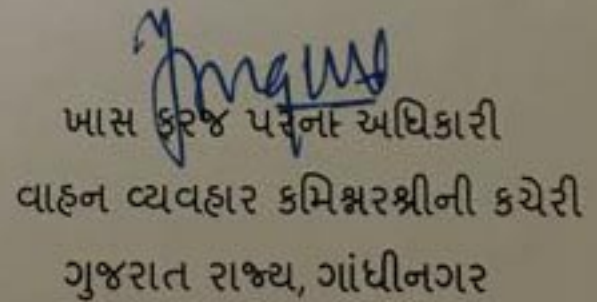 ખાસ ફરજ પરના અધિકારી
વાહન વ્યવહાર કમિશ્નરશ્રીની કચેરી
ગુજરાત રાજ્ય, ગાંધીનગર